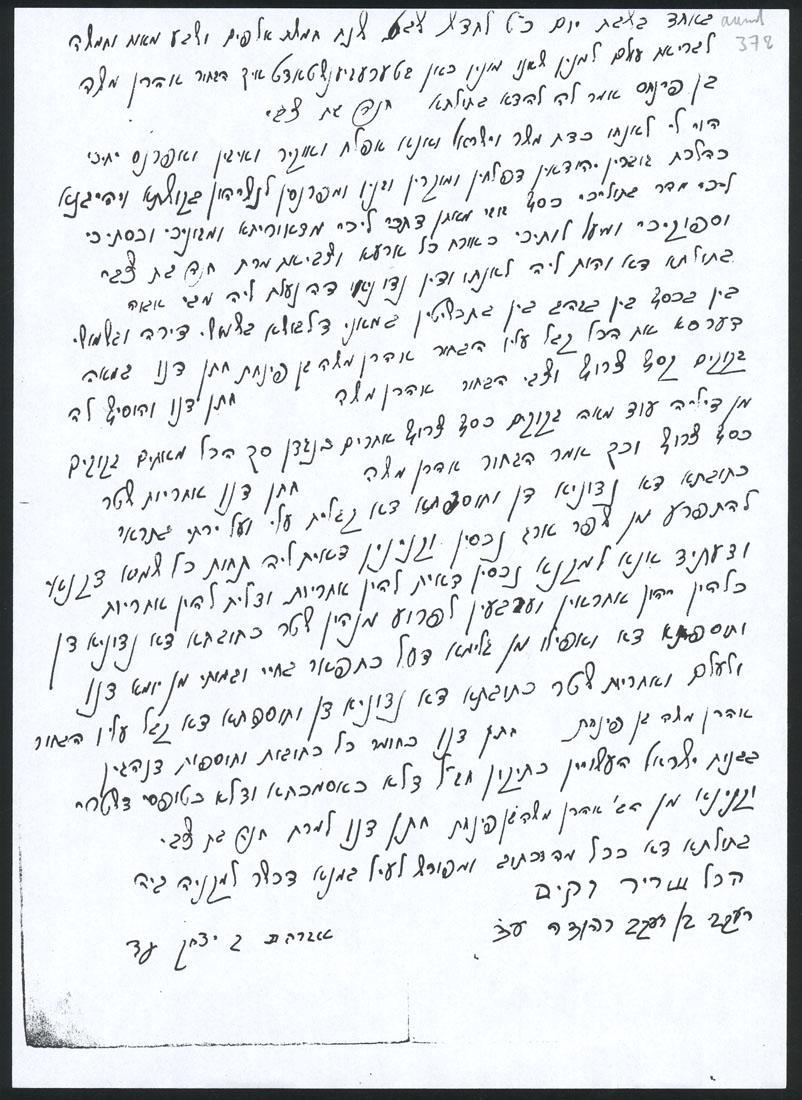 באחד בשבת יום כ״ט לחדש שבט שנת חמשת אלפים ושבע מאות וחמשה
aumd
378
לבריאת עולם למנין שאנו מונין כאן איך הבחור אהרן משה
בן פינחס אמר לה להדא בתולתא חנה בת צבי
הוי לי לאנתו כדת משה וישראל ואנא אפלח ואוקיר ואיזון ואפרנס יתיכי
כהלכת גוברין יהודאין דפלחין ומוקרין וזנין ומפרנסין לנשיהון בקושטא ויהיבנא
ליכי מהר בתוליכי כסף זוזי מאתן דחזי ליכי מדאורייתא ומזוניכי וכסותיכי
וספוקיכי ומיעל לותיכי כאורח כל ארעא וצביאת מרת חנה בת צבי
בתולתא דא והות ליה לאנתו ודין נדוניא דהנעלת ליה מבי אבוה
בין בכסף בין בזהב בין בתכשיטין במאני דלבושא בשמושי דירה ובשמושי
דערסא את הכל קבל עליו הבחור אהרן משה בן פינחס חתן דנן במאה
זקוקים כסף צרוף וצבי הבחור אהרן משה חתן דנן והוסיף לה
מן דיליה עוד מאה זקוקים כסף צרוף אחרים כנגדן סך הכל מאתים זקוקים
כסף צרוף וכך אמר הבחור אהרן משה חתן דנן אחריות שטר
כתובתא דא נדוניא דן ותוספתא דא קבלית עלי ועל ירתי בתראי
להתפרע מן שפר ארג נכסין וקנינין דאית ליה תחות כל שמיא דקנאי
ודעתיד אנא למקנא נכסין דאית להון אחריות ודלית להון אחריות
כלהון יהון אחראין וערבאין לפרוע מנהון שטר כתובתא דא נדוניא דן
ותוספתא דא ואפילו מן גלימא דעל כתפאי בחיי ובמותי מן יומא דנן
ולעלם ואחריות שטר כתובתא דא נדוניא דן ותוספתא דא קבל עליו הבחור
אהרן משה בן פינחס חתן דנן כחומר כל כתובות ותוספות דנהגין
בבנות ישראל העשויין כתיקון חז״ל דלא כאסמכתא ודלא כטופסי דשטרי
וקנינא מן הב׳ אהרן משה בן פינחס חתן דנן למרת חנה בת צבי
בתולתא דא ככל מה דכתוב ומפורש לעיל במנא דכשר למקניה ביה
הכל שריר וקים
יעקב בן יעקב עד
אברהם ב יצחק עד